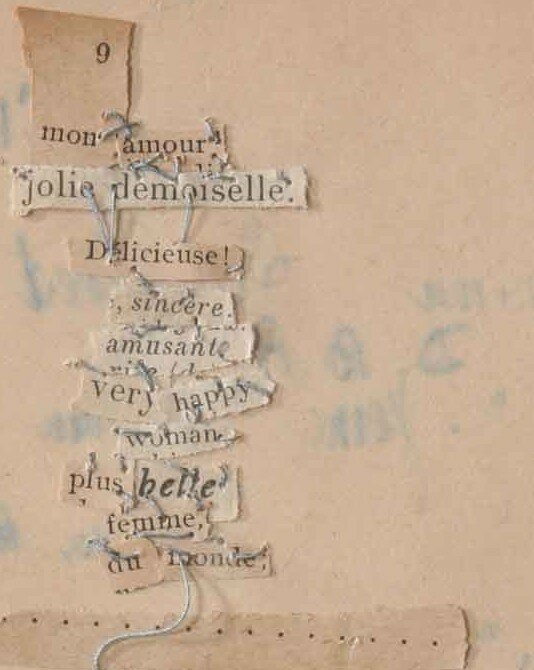 9
mon amour
jolie demoiselle.
Délicieuse!
, sincère.
amusante
very happy
woman
plus belle
femme,
du monde,